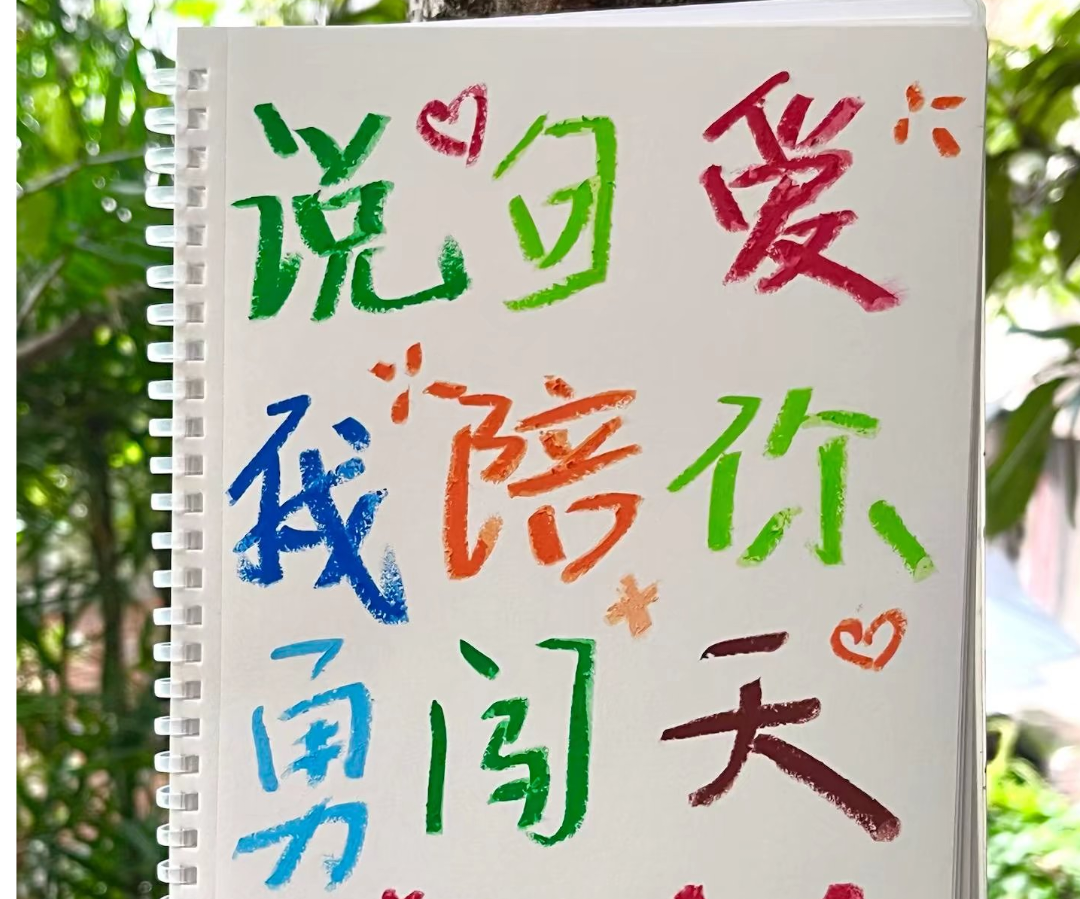 说句爱
我陪你
勇闯天